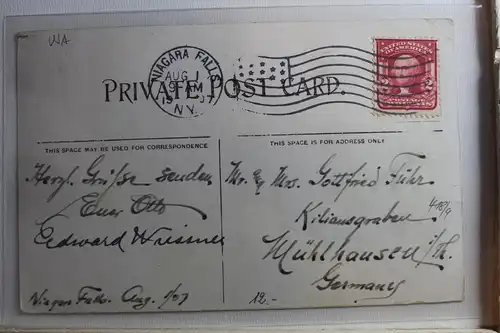 WA
NIAGARA FALLS
AUG 1
9 PM
1907
N.Y.
UNITED STATES OF AMERICA
2 2
POSTAGE
PRIVATE POST CARD.
THIS SPACE MAY BE USED FOR CORRESPONDENCE
THIS SPACE IS FOR ADDRESS ONLY
Herzl. Grüße senden
Euer Otto
Edward Wiesner
Niagara Falls. Aug. 1/07
Mr. & Mrs. Gottfried Führ
Kiliansgraben
Mühlhausen i/Th.
Germany
12.-